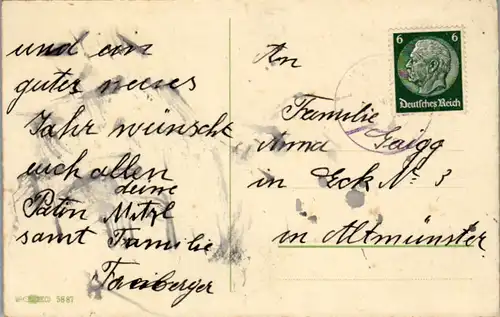 und ein
gutes neues
Jahr wünscht
euch allen
deine
Patin Mitzl
samt Familie
Freiberger
5887
An
Familie
Anna Gaigg
in Eck Nº 3
in Altmünster
6 6
Deutsches Reich